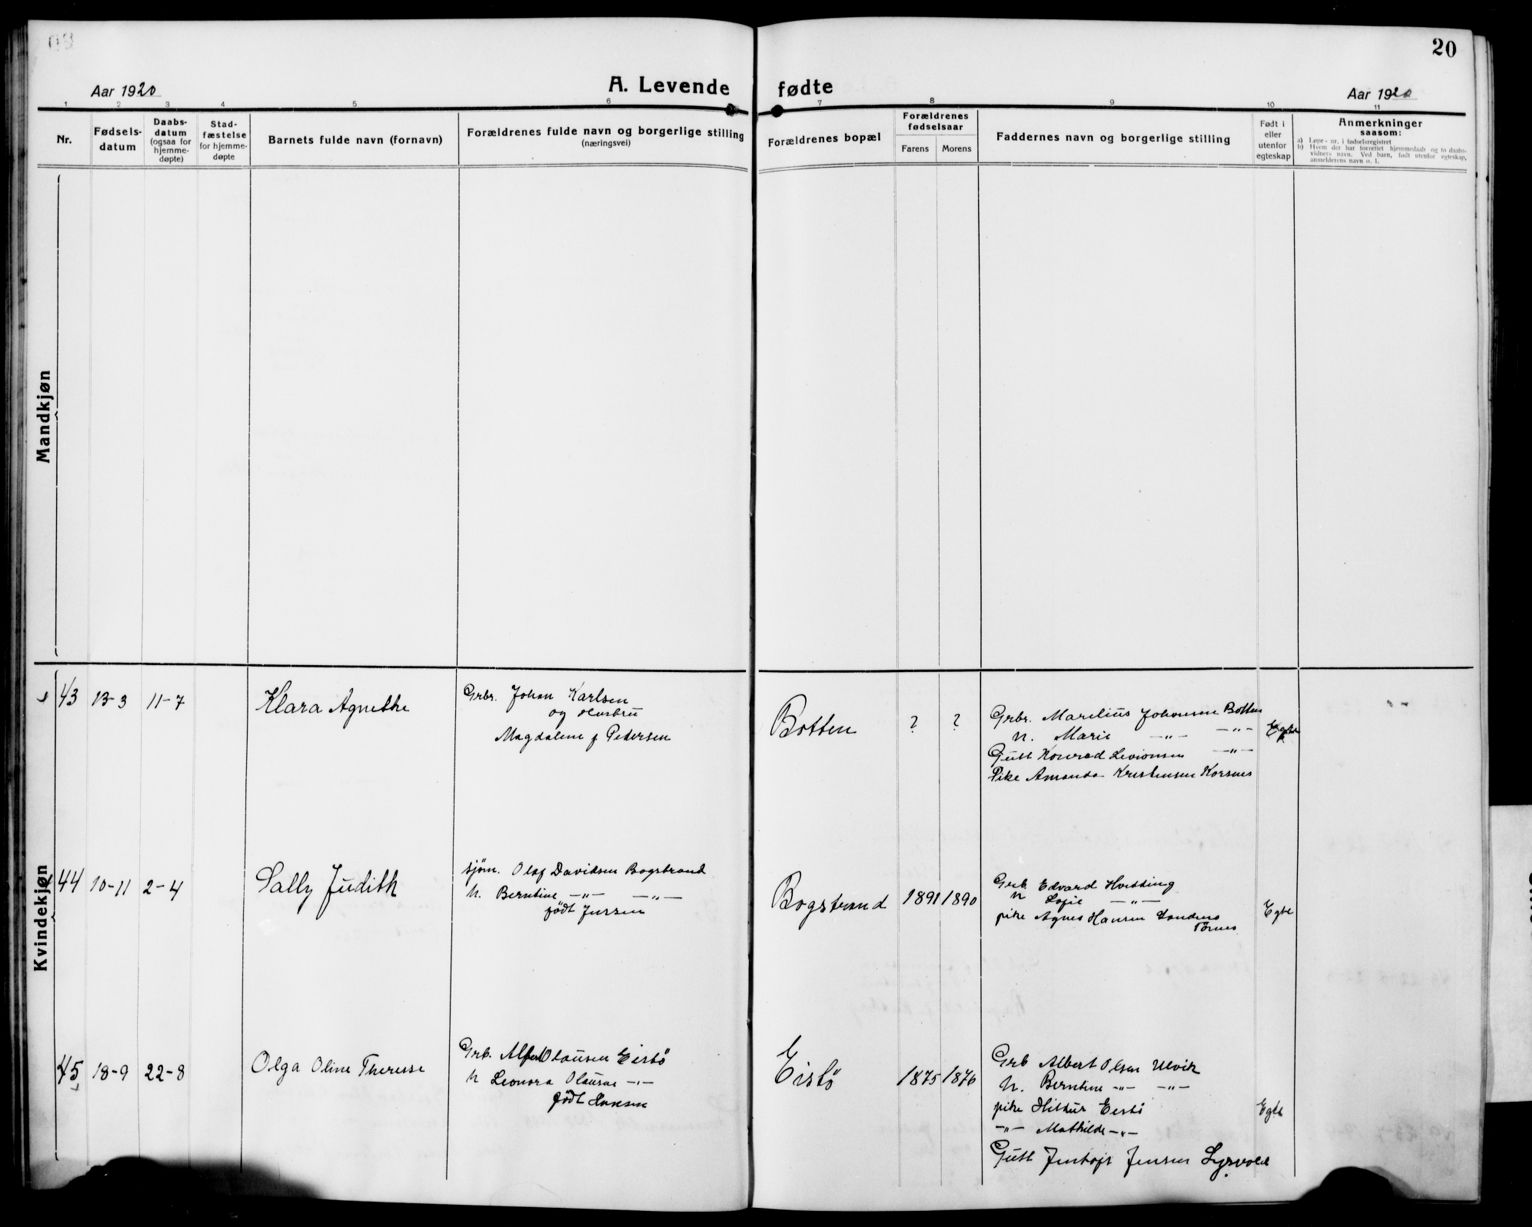 20
Aar 1920
A. Levende fødte
Aar 1920
1 2 3 4 5 6 7 8 9 10 11
Nr.
Fødsels-
datum
Daabs-
datum
(ogsaa for
hjemme-
døpte)
Stad-
fæstelse
for hjemme-
døpte
Barnets fulde navn (fornavn)
Forældrenes fulde navn og borgerlige stilling
(næringsvei)
Forældrenes bopæl
Forældrenes
fødselsaar
Farens
Morens
Faddernes navn og borgerlige stilling
Født i
eller
utenfor
egteskap
Anmerkninger
saasom:
Mandkjøn
Kvindekjøn
43 13-3 11-7
Klara Agnethe
Grbr. Johan Karlsen
og Hustru
Magdalene f Pedersen
Botten
? ?
Grbr. Marelius Johansen Botten
h. Marie —"— —"—
Gutt Konrad —"—
Pike Amanda Kristensen Korsnes
Egte
44 10-11 2-4
Sally Judith
sjøm. Olaf Davidsen Bogstrand
h. Berntine —"— —"—
født Jensen
Bogstrand
1891 1890
Grb. Edvard Hvidding
h Sofie —"—
pike Agnes Hansen
Egte
45 18-9 22-8
Olga Oline Therese
Grb. Albert Olausen Eistø
h Leonora Olausen —"—
født Hansen
Eistø
1875 1876
Grb Albert Olsen Ulvik
h. Berntine —"— —"—
pike Hildur Eistø
—"— Mathilde —"—
Gutt Jensen
Egte